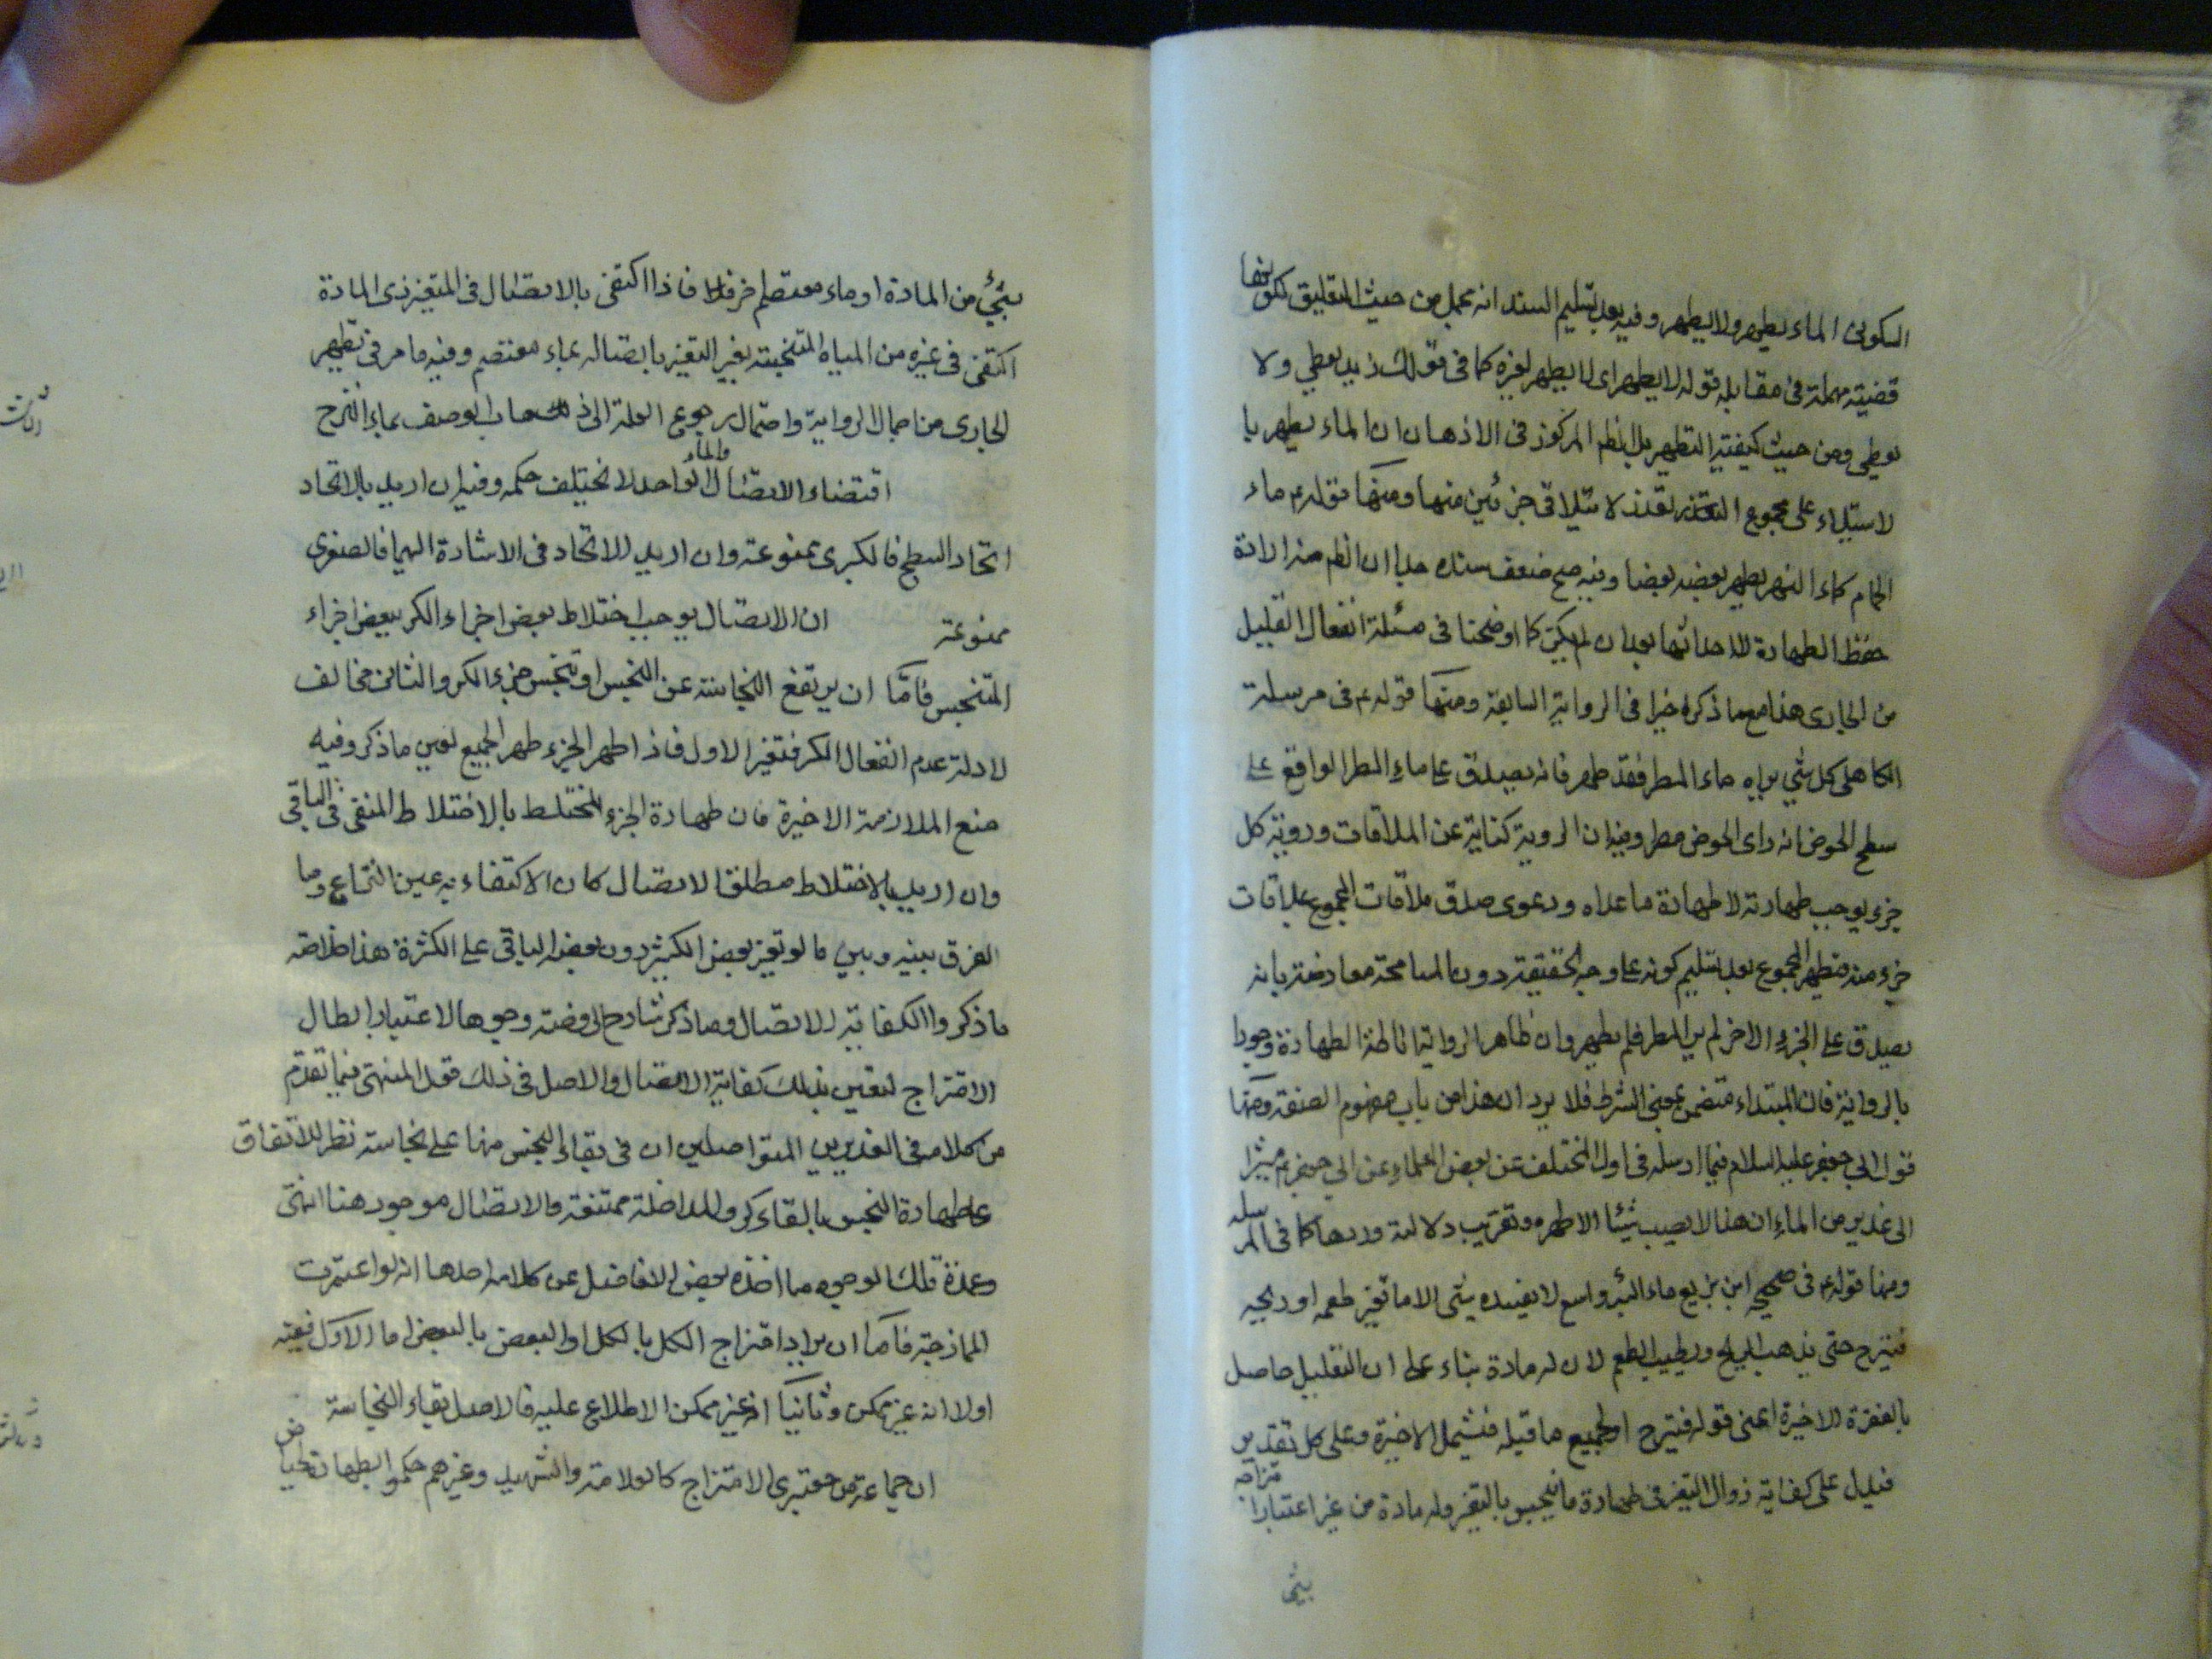 السكونى الماء يطهر ولا يطهر وفيه بعد تسليم السند انه مجمل من حيث التعليق لكونها
قضية مهملة فى مقابلة قوله لا يطهر اى لا يطهر لغيره كما فى قولك زيد يعطى ولا
يعطى ومن حيث كيفية التطهير بل الظم المركوز فى الاذهان ان الماء يطهر با
لاستيلاء على مجموع المتقذر لا يتلاقى جزئين منها ومنها قوله ع ماء
الحمام كماء النهر يطهر بعضه بعضا وفيه مع ضعف سنده جدا ان الظم منه ارادة
حفظ الطهارة لا احداثها بعد ان لم يكن كما اوضحنا فى مسئلة انفعال القليل
من الجارى هذا مع ما ذكره اخيرا فى الرواية السابقة ومنها قوله ع فى مرسلة
الكاهلى كل شي يراه ماء المطر فقد طهر فانه يصدق على ماء المطر الواقع على
سطح الحوض انه راى الحوض مطر وفيه ان الروية كناية عن الملاقات وروية كل
جزء يوجب طهارته لا طهارة ما عداه ودعوى صدق ملاقات المجموع بملاقات
جزء منه فيطهر المجموع بعد تسليم كونه على وجه الحقيقة دون المسامحة معارضة بانه
يصدق على الجزء الاخر لم ير المطر فلم يطهر وان ظاهر الرواية اناطة الطهارة وجودا
بالرواية فان المبتداء متضمن بمعنى الشرط فلا يرد ان هذا من باب مفهوم الصفة ومنها
قول ابى جعفر عليه السلام فيما ارسله فى اول المختلف عن بعض العلماء عن ابي جعفر ع مشيرا
الى غدير من الماء ان هذا لا يصيب شيئا الا طهره وتقريب دلالته وردها كما فى المرسله
ومنها قوله ع فى صحيحه ابن بزيع ماء البئر واسع لا يفسده شئى الا ما تغير طعمه او ريحه
فينزح حتى يذهب الريح ويطيب الطعم لان له مادة بناء على ان التعليل حاصل
بالفقرة الاخيرة اعنى قوله فينزح او لجميع ما قبله فيشمل الاخيرة وعلى كل تقدير
فيدل على كفاية زوال التغير فى طهارة ما ينجس بالتغير وله مادة من غير اعتبار امتزاجه
بشئ
بشئ من المادة او ماء معتصم خرفاذا اكتفى بالاتصال فى المتغير ذى المادة
اكتفى فى غيره من المياه المتنجسة بغير التغير باتصاله بماء معتصم وفيه ما مر فى تطهير
الجارى من اجمال الرواية واحتمال رجوع العلة الى ذهاب الوصف بماء النزح
اقتضاء الاتصال والماء الواحد لا يختلف حكمه وفيه ان اريد بالاتحاد
اتحاد السطح فالكبرى ممنوعة وان اريد الاتحاد فى الاشارة اليهما فالصغرى
ممنوعة ان الاتصال يوجب اختلاط بعض اجزاء الكر ببعض اجزاء
المتنجس فامّا ان يرتفع النجاسة عن النجس او تنجس جزء الكر والثانى مخالف
لادلة عدم انفعال الكر فتعين الاول فاذا طهر الجزء طهر الجميع لعين ما ذكر وفيه
منع الملازمة الاخيرة فان طهارة الجزء المختلط بالاختلاط المنفى فى الباقى
وان اريد بالاختلاط مطلق الاتصال كان الاكتفاء به عين النزاع وما
الفرق بينه وبين ما لو تغير بعض الكثير دون بعضه الباقى على الكثرة هذا خلاصة
ما ذكروا لكفاية الاتصال وما ذكر شارح الروضة وجوها لاعتبار ابطال
الامتزاج لتعين بذلك كفاية الاتصال والاصل فى ذلك قول المنتهى فيما تقدم
من كلامه فى الغديرين المتواصلين ان فى بقاء النجس منهما على نجاسته نظر للاتفاق
على طهارة النجس بالقاء كر والمداخلة ممتنعة والاتصال موجود هنا انتهى
وعمدة تلك الوجوه ما اخذه بعض الافاضل عن كلامه احدها انه لو اعتبرت
الممازجة فاما ان يراد امتزاج الكل بالكل او البعض بالبعض اما الاول ففيه
اولا انه غير ممكن وثانيا انه غير ممكن الاطلاع عليه فالاصل بقاء النجاسة
ان جماعة من معتبرى الامتزاج كالعلامة والشهيد وغيرهم حكموا بطهارة حياض